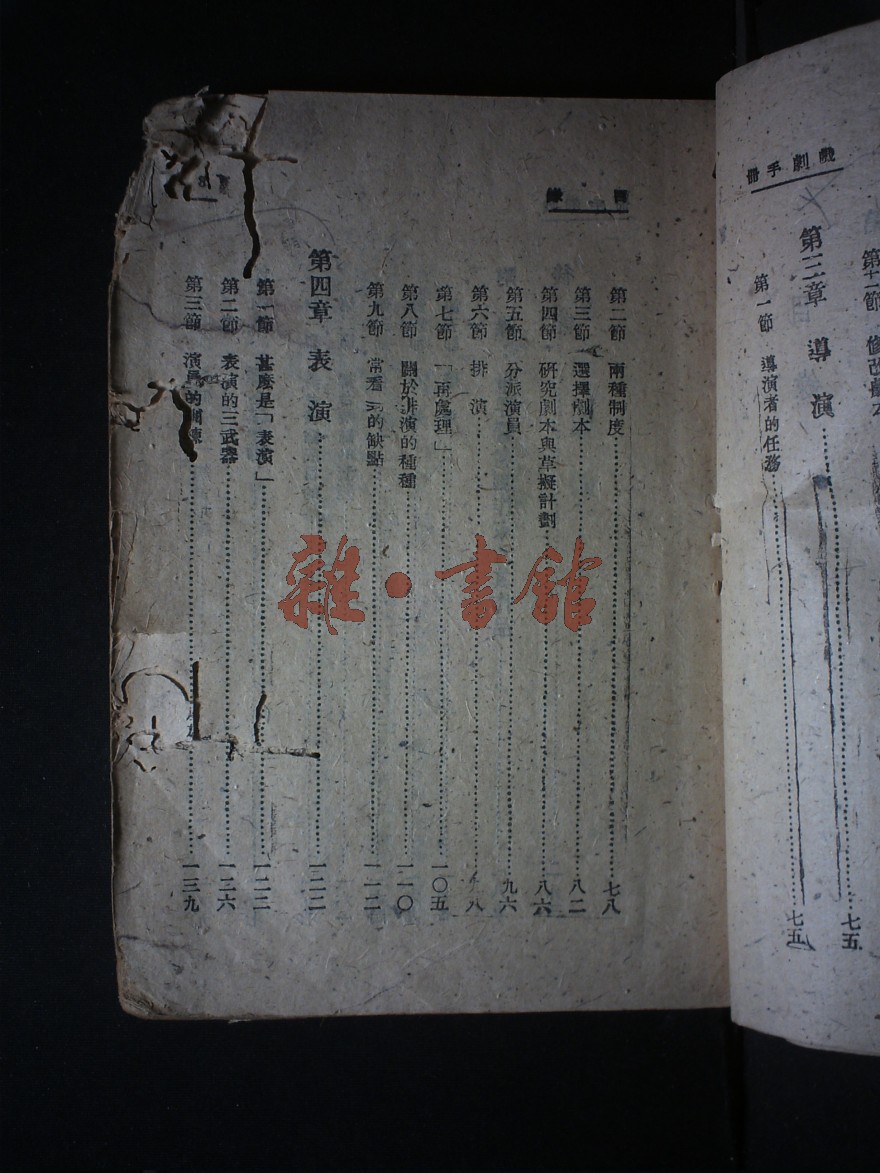 戲劇手冊
第十一節 修改劇本 七五
第三章 導演 七五
第一節 導演者的任務 七五
目錄
第二節 兩種制度 七八
第三節 選擇劇本 八二
第四節 研究劇本與草擬計劃 八六
第五節 分派演員 九六
第六節 排演 八
第七節 「再處理」 一〇五
第八節 關於排演的種種 一一〇
第九節 常看 的缺點 一一二
第四章 表演 一二二
第一節 甚麼是「表演」 一二二
第二節 表演的三武器 一二六
第三節 演員的訓練 一三九
雜·書館